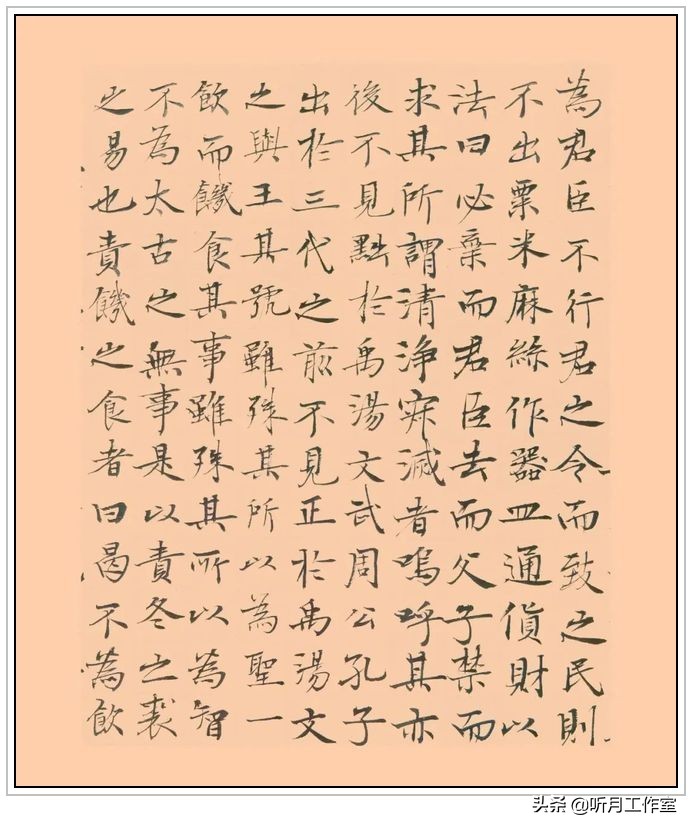 為君臣不行君之令而致之民則
不出粟米麻絲作器皿通貨財以
法曰必棄而君臣去而父子禁而
求其所謂清淨寂滅者嗚呼其亦
後不見黜於禹湯文武周公孔子
出於三代之前不見正於禹湯文
之與王其號雖殊其所以為聖一
飲而饑食其事雖殊其所以為智
不為太古之無事是以責冬之裘
之易也責饑之食者曰曷不為飲
头条 @听月工作室